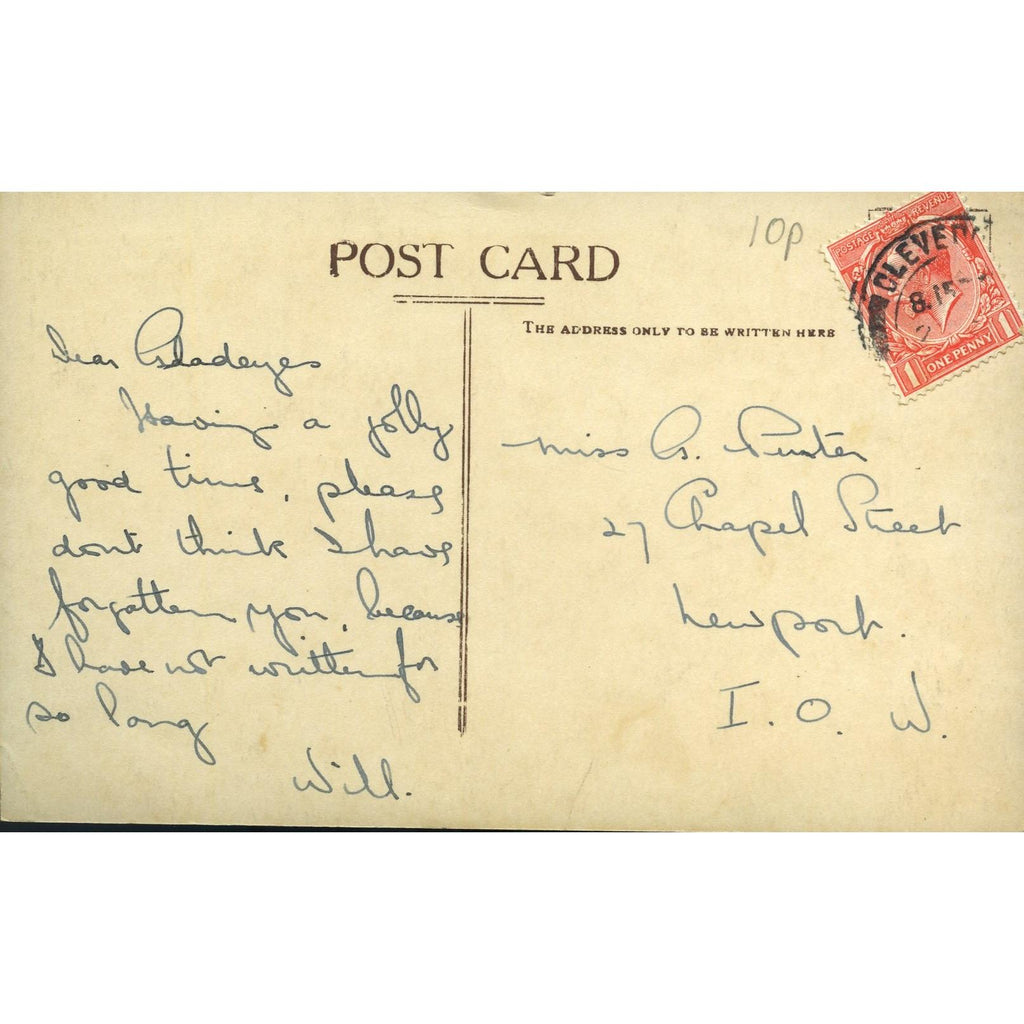 10p
POSTAGE REVENUE
CLEVED
8.15
1 ONE PENNY 1
POST CARD
THE ADDRESS ONLY TO BE WRITTEN HERE
Dear Gladeyes
Having a jolly
good time, please
dont think I have
forgotten you, because
I have not written for
so long
Will.
Miss G.
27 Chapel Street
Newport.
I. O. W.